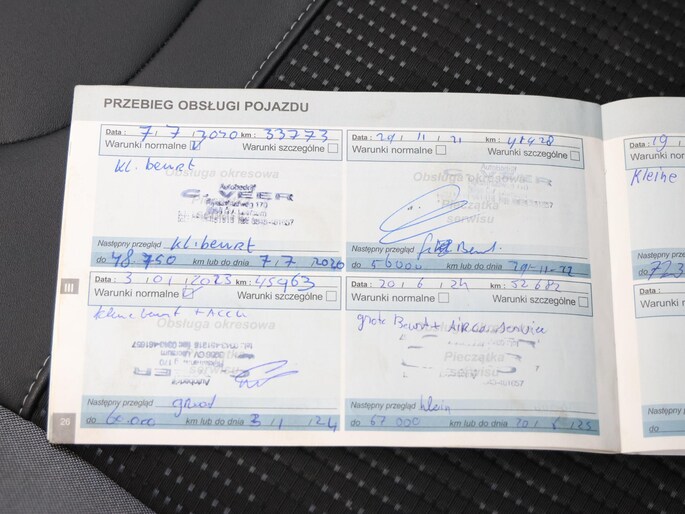 PRZEBIEG OBSŁUGI POJAZDU
Data : 7 / 7 / 2020 km : 33773
Warunki normalne Warunki szczególne
kl. beurt
Obsługa okresowa
C. VEER
Następny przegląd kl. beurt
do 48.750 km lub do dnia 7 / 7 2020
Data : 29 / 11 / 21 km : 41928
Warunki normalne Warunki szczególne
Obsługa okresowa
Pieczątka
serwisu
Następny przegląd Beurt.
do 56000 km lub do dnia 29-11-22
III
Data : 3 / 01 / 2023 km : 45963
Warunki normalne Warunki szczególne
kleine beurt + Accu
Obsługa okresowa
Następny przegląd groot
do 60.000 km lub do dnia 3 / 11 / 24
Data : 20 / 6 / 24 km : 52682
Warunki normalne Warunki szczególne
grote Beurt + Airco service
Obsługa okresowa
Pieczątka
serwisu
Następny przegląd klein
do 67 000 km lub do dnia 20 / 6 / 25
26
Data : 19
Warunki norma
Kleine
Następny prze
do 723
Data :
Warunki norma
Następny prz
do